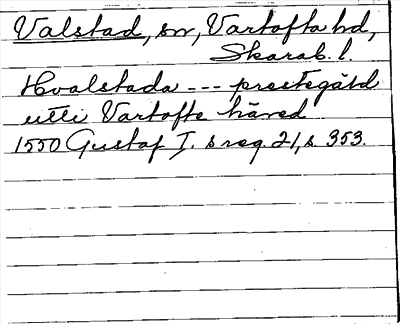 Valstad, sn, Vartofta hd,
Skarab. l.
Hvalstada --- prestegåld
utti Vartofte häred
1550 Gustaf I. s reg. 21, s. 353.